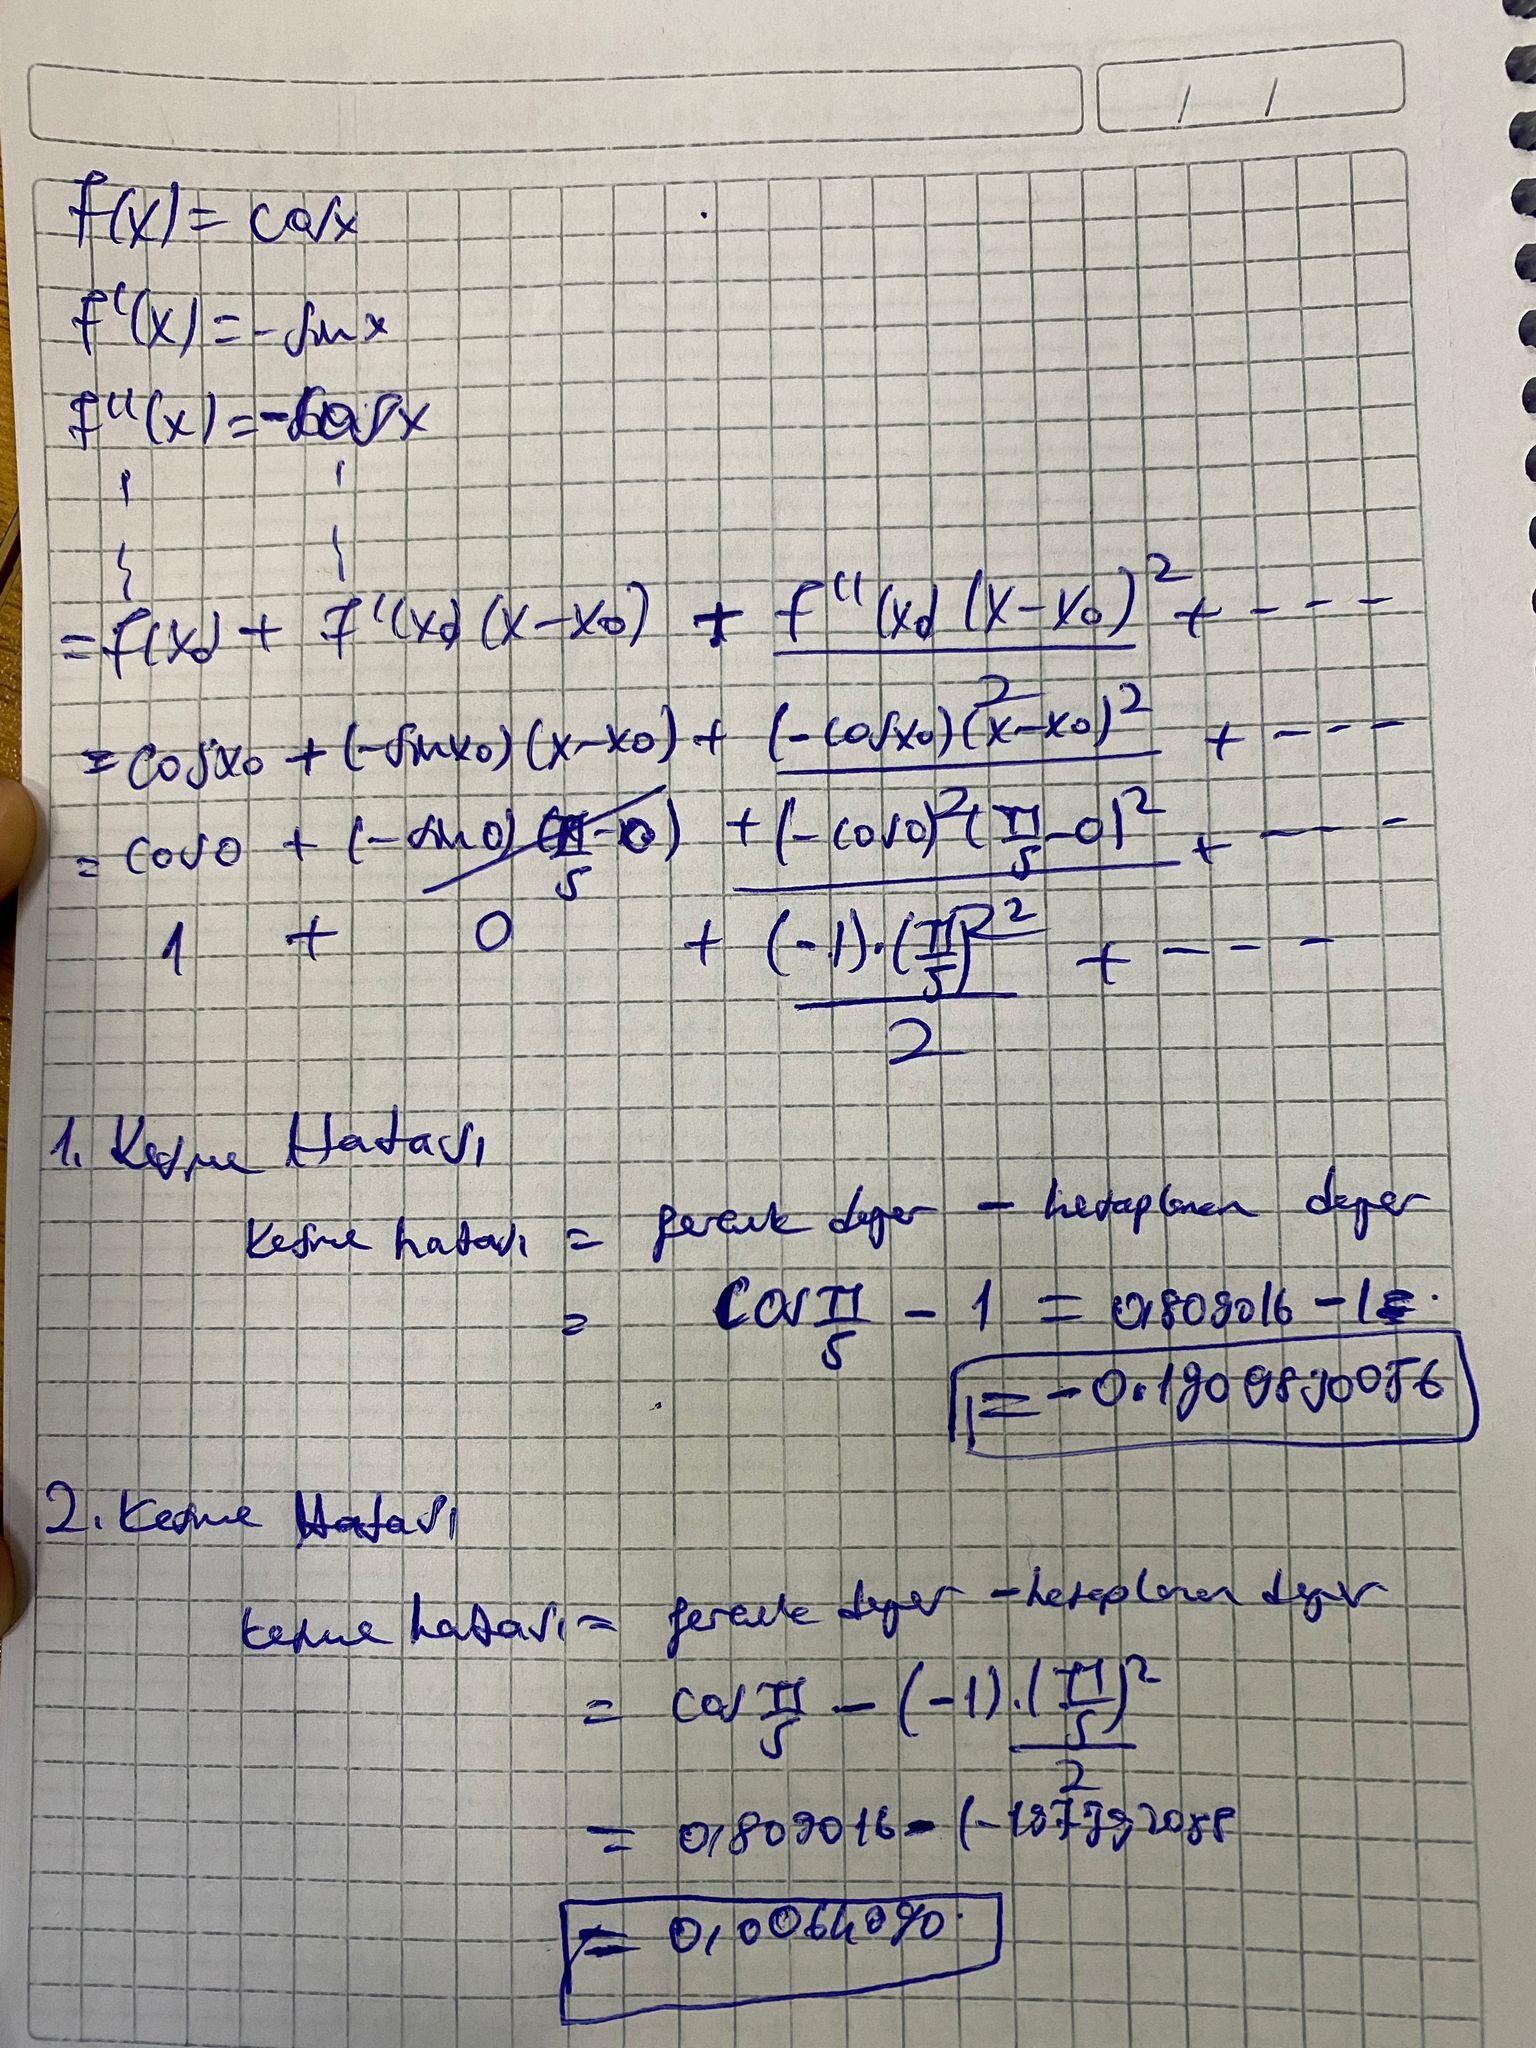 / /
f(x) = cosx
f'(x) = -sinx
f''(x) = -cosx
= f(x₀) + f'(x₀)(x-x₀) + f''(x₀)(x-x₀)² / 2 + ----
= cosx₀ + (-sinx₀)(x-x₀) + (-cosx₀)(x-x₀)² / 2 + ----
= cos0 + (-sin0)(π/5-0) + (-cos0)(π/5-0)² / 2 + ----
1 + 0 + (-1).(π/5)² / 2 + ----
1. Kesme Hatası
kesme hatası = gerçek değer - hesaplanan değer
= cos π/5 - 1 = 0,809016 - 1 =
= -0.1909830056
2. Kesme Hatası
kesme hatası = gerçek değer - hesaplanan değer
= cos π/5 - (-1).(π/5)² / 2
= 0,809016 - (-
= 0,0064090